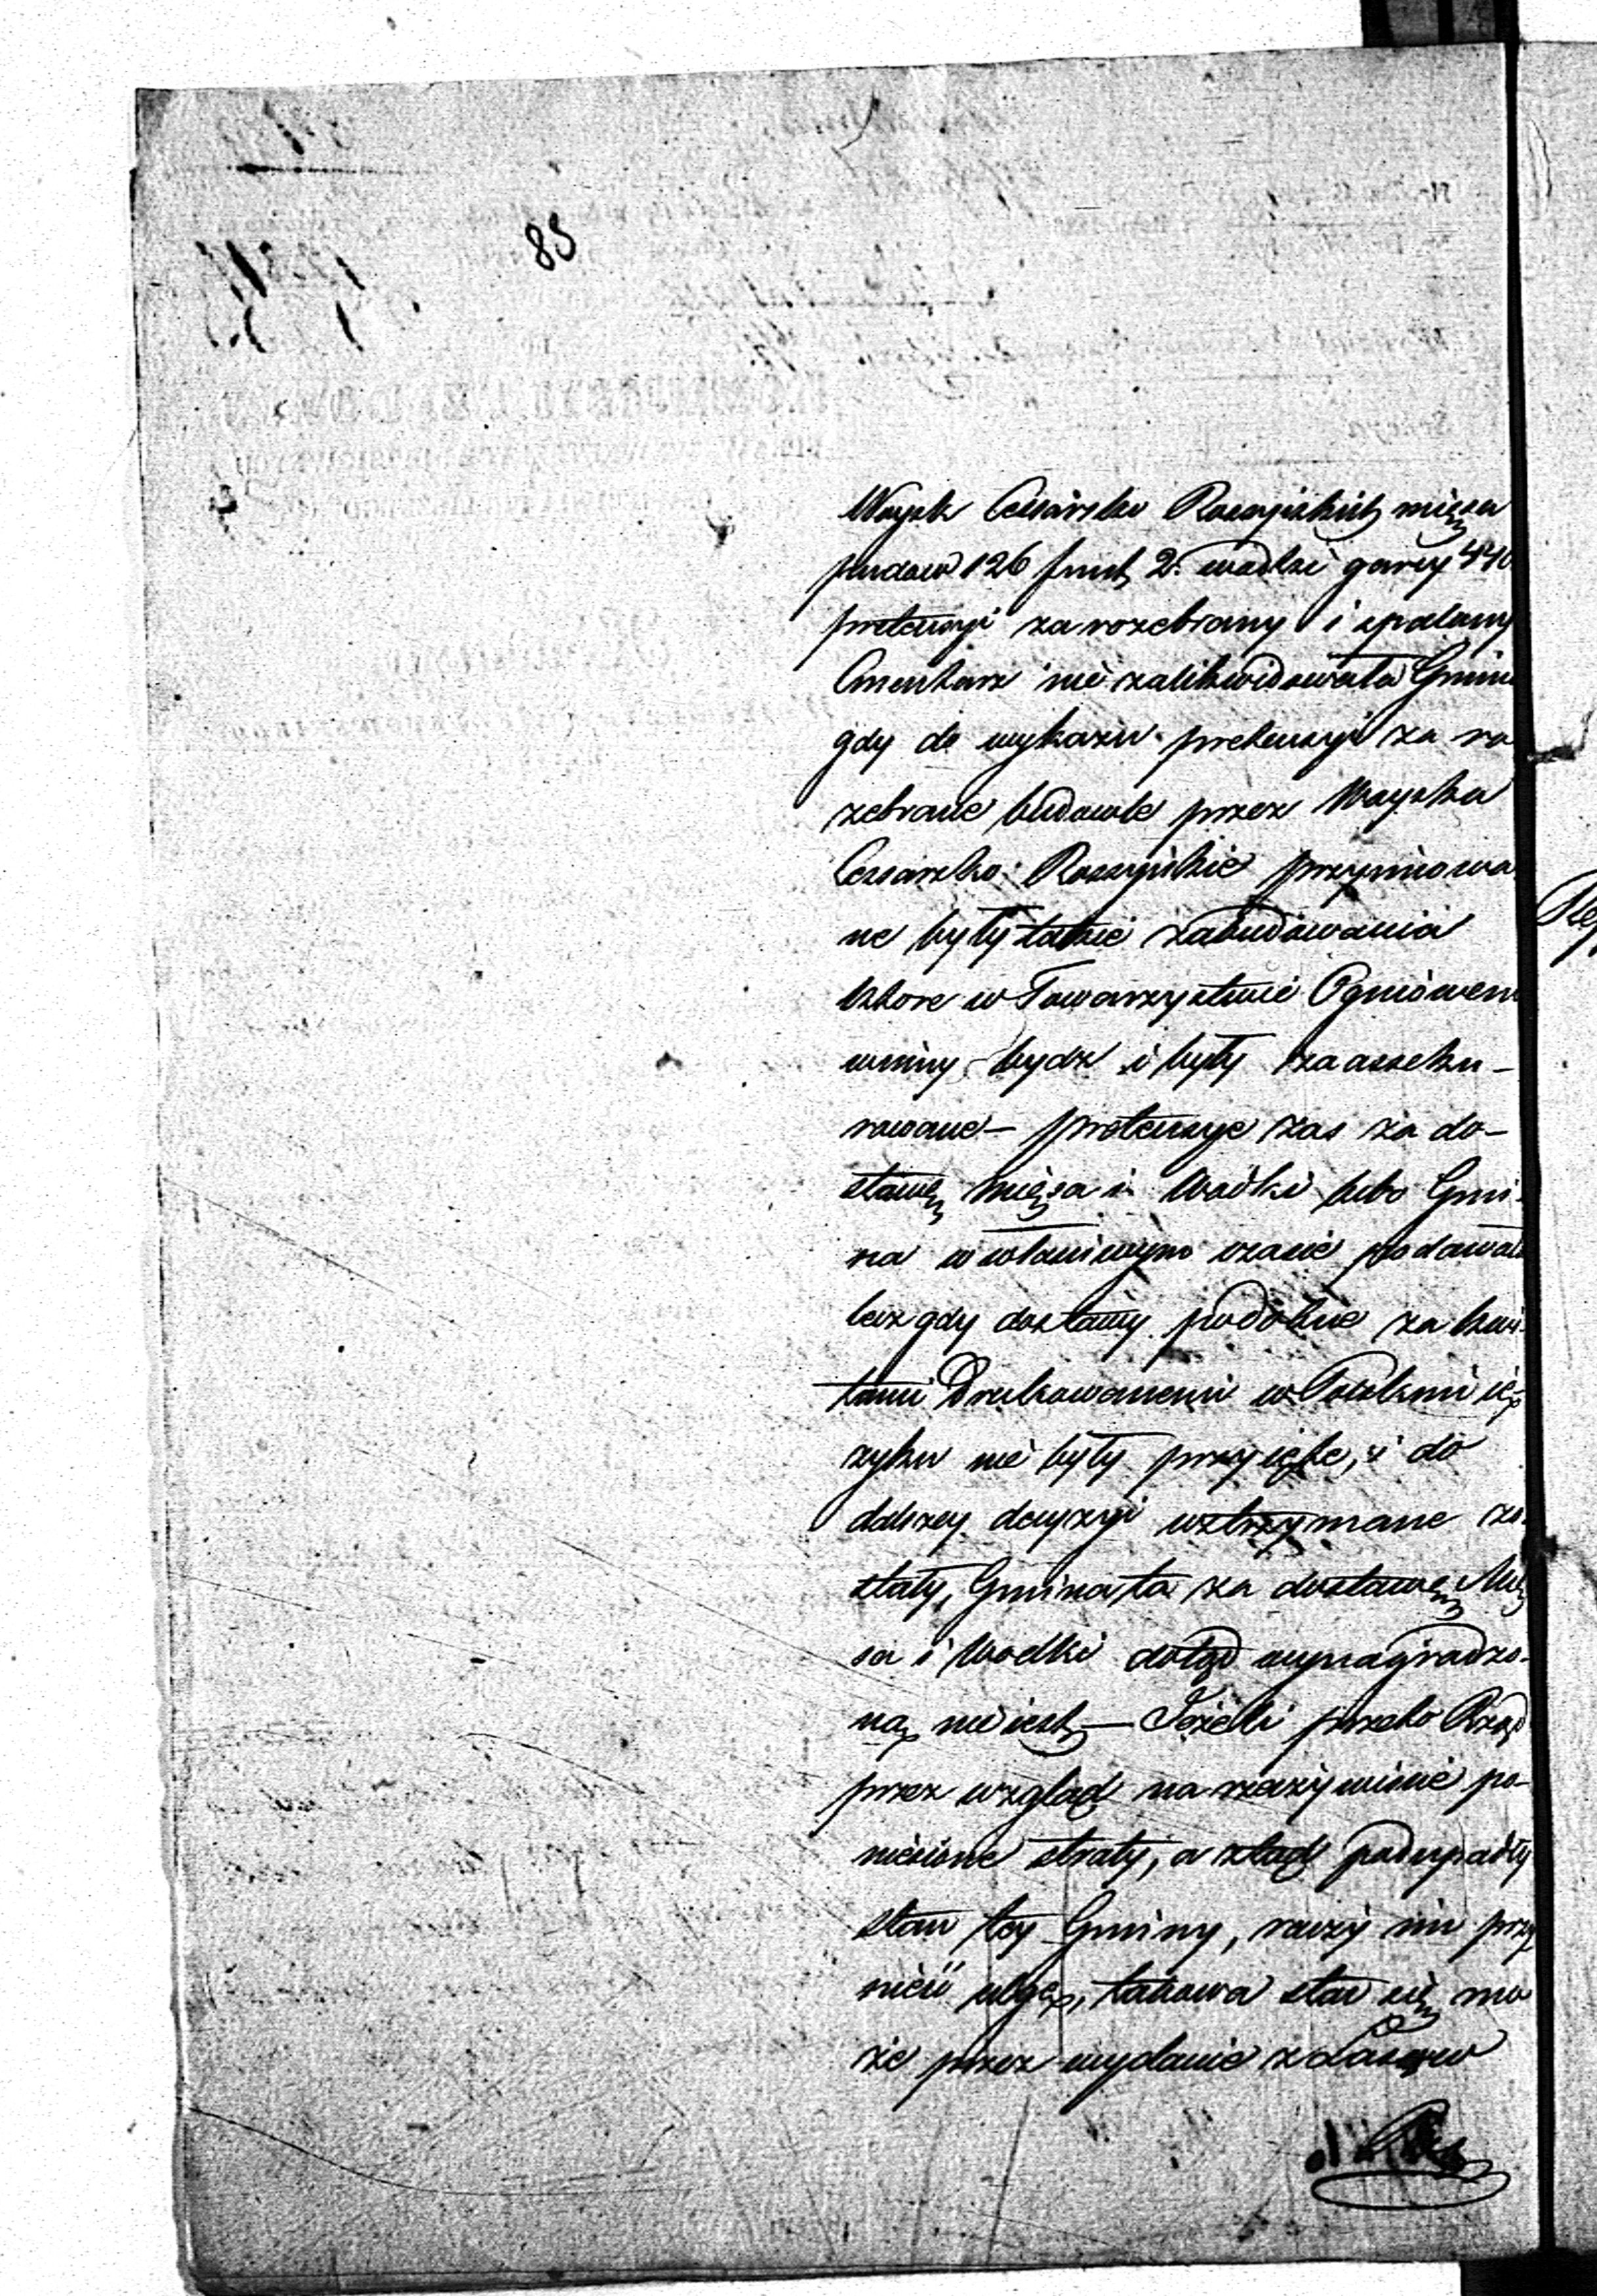 85
Woysk Cesarsko Rossyiskich mięsa
pudow 126 funt 2. wodki garcy 440
pretensyi za rozebrany i spalony
Cmentarz nie zalikwidowała Gmina
gdy do wykazu pretensyi za ro
zebrane budowle przez Woyska
Cesarsko Rossyiskie przyimowa
ne były takie zabudowania
ktore w Towarzystwie Ogniowem
winny bydz i były zaasseku-
rowane – pretensye zas za do-
stawę mięsa i Wodki lubo Gmi-
na w własciwym czasie podawała
lecz gdy dostawy podobne za kwi-
tami Drukowanemi w Polskim ię-
zyku nie były przyięte, i do
dalszey decyzyi wstrzymane zo-
stały, Gmina ta za dostawę Mię
sa i Wodki dotąd wynagrodzo-
ną nie iest – Jeżeli przeto Rząd
przez wzgląd na rzeczywiscie po-
niesione straty, a ztąd podupadły
stan tey Gminy, raczy im przy
nieść ulgę, takowa stać się mo
że przez wydanie z Lasow